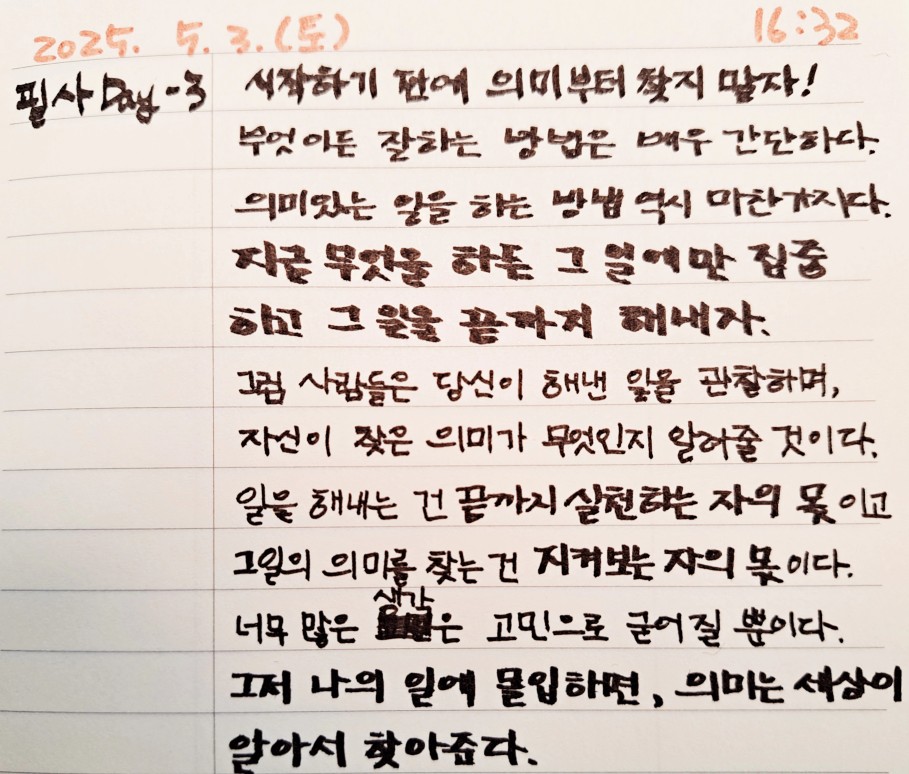 2025. 5. 3. (토) 16:32
필사 Day-3 시작하기 전에 의미부터 찾지 말자!
무엇이든 잘하는 방법은 매우 간단하다.
의미있는 일을 하는 방법 역시 마찬가지다.
지금 무엇을 하든 그 일에만 집중
하고 그 일을 끝까지 해내자.
그럼 사람들은 당신이 해낸 일을 관찰하며,
자신이 찾은 의미가 무엇인지 알려줄 것이다.
일을 해내는 건 끝까지 실천하는 자의 몫이고
그일의 의미를 찾는 건 지켜보는 자의 몫이다.
너무 많은 생각은 고민으로 굳어질 뿐이다.
그저 나의 일에 몰입하면, 의미는 세상이
알아서 찾아준다.